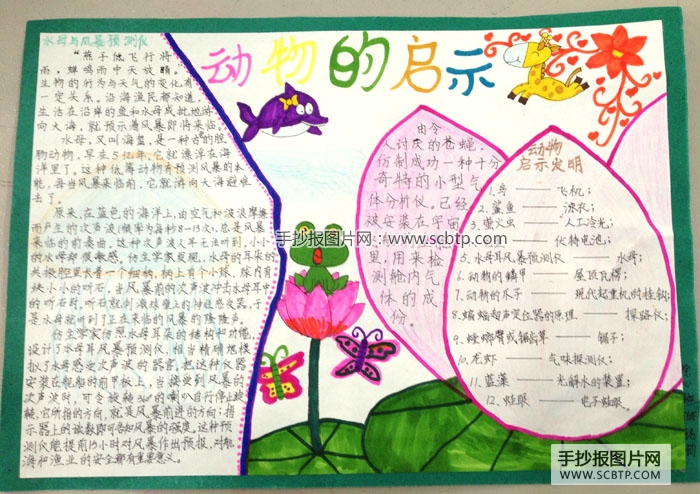 动物的启示
水母与风暴预测仪
"燕子低飞行将
雨,蝉鸣雨中天放晴。"
生物的行为与天气的变化有
一定关系。沿海渔民都知道,
生活在沿岸的鱼和水母成批地游
向大海,就预示着风暴即将来临。
水母,又叫海蜇,是一种古老的腔
肠动物,早在5亿年,它就漂浮在海
洋里了。这种低等动物有预测风暴的本
能,每当风暴来临前,它就游向大海避难
去了。
原来,在蓝色的海洋上,由空气和波浪摩擦
而产生的次声波(频率为每秒8—13次),总是风暴
来临的前奏曲。这种次声波人耳无法听到,小小
的水母却很敏感。仿生学家发现,水母的耳朵的
共振腔里长着一个细柄,柄上有个小球,球内有
块小小的听石,当风暴前的次声波冲击水母耳中
的听石时,听石就刺激球壁上的神经感受器,于
是水母就听到了正在来临的风暴的隆隆声。
仿生学家仿照水母耳朵的结构和功能,
设计了水母耳风暴预测仪,相当精确地模
拟了水母感受次声波的器官。把这种仪器
安装在舰船的前甲板上,当接受到风暴的
次声波时,可令旋转360°的喇叭自行停止旋
转,它所指的方向,就是风暴前进的方向;指
示器上的读数即可告知风暴的强度。这种预
测仪能提前15小时对风暴作出预报,对航
海和渔业的安全都有重要意义。
由令
人讨厌的苍蝇,
仿制成功一种十分
奇特的小型气
体分析仪。已经
被安装在宇宙
里,用来检
测舱内气
体的成
份。
动物
启示发明
1.鸟——飞机;
2.鲨鱼——泳衣;
3.萤火虫——人工冷光;
——伏特电池;
5.水母耳风暴预测仪——水母;
6.动物的鳞甲——屋顶瓦楞;
7.动物的爪子——现代起重机的挂钩;
8.蝙蝠超声定位器的原理——探路仪;
9.螳螂臂或锯齿草——锯子;
10.龙虾——气味探测仪;
11.蓝藻——光解水的装置;
12.蛙眼——电子蛙眼。
手抄报图片网 www.scbtp.com
手抄报图片网
WWW.SCBTP.COM